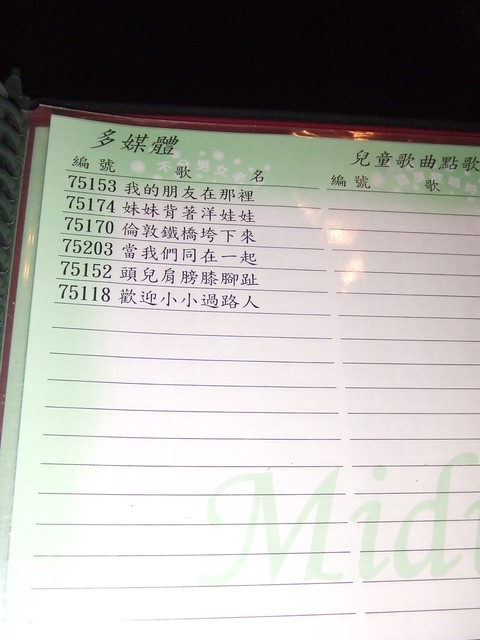 多媒體
兒童歌曲點歌
編號 歌 名
編號 歌
75153 我的朋友在那裡
75174 妹妹背著洋娃娃
75170 倫敦鐵橋垮下來
75203 當我們同在一起
75152 頭兒肩膀膝腳趾
75118 歡迎小小過路人
Mid